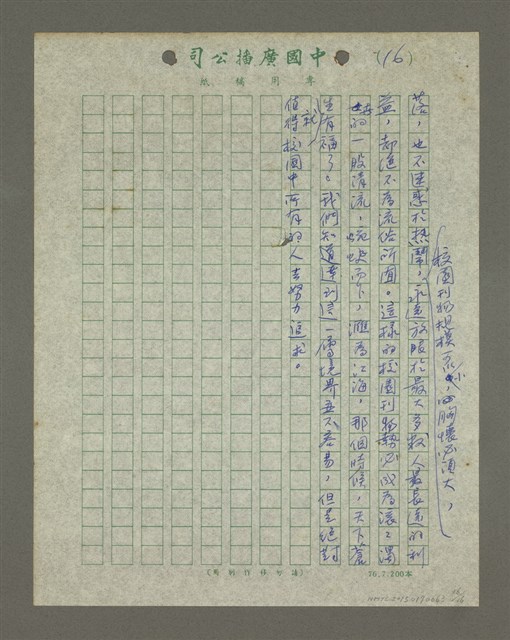 中國廣播公司
專用稿紙
(16)
校園刊物規模不必小，但胸懷必須大，
落，也不迷惑於熱鬧，永遠放眼於最大多數人最長遠的利
益，卻進不為流俗所囿。這樣的校園刊物勢必成為滾滾濁
世的一股清流，蜿蜒而下，匯為江海，那個時候，天下蒼
生有福了。我們知道達到這一層境界並不容易，但是絕對
就
值得校園中所有的人去努力追求。
(請勿移作別用)
76.7.200本